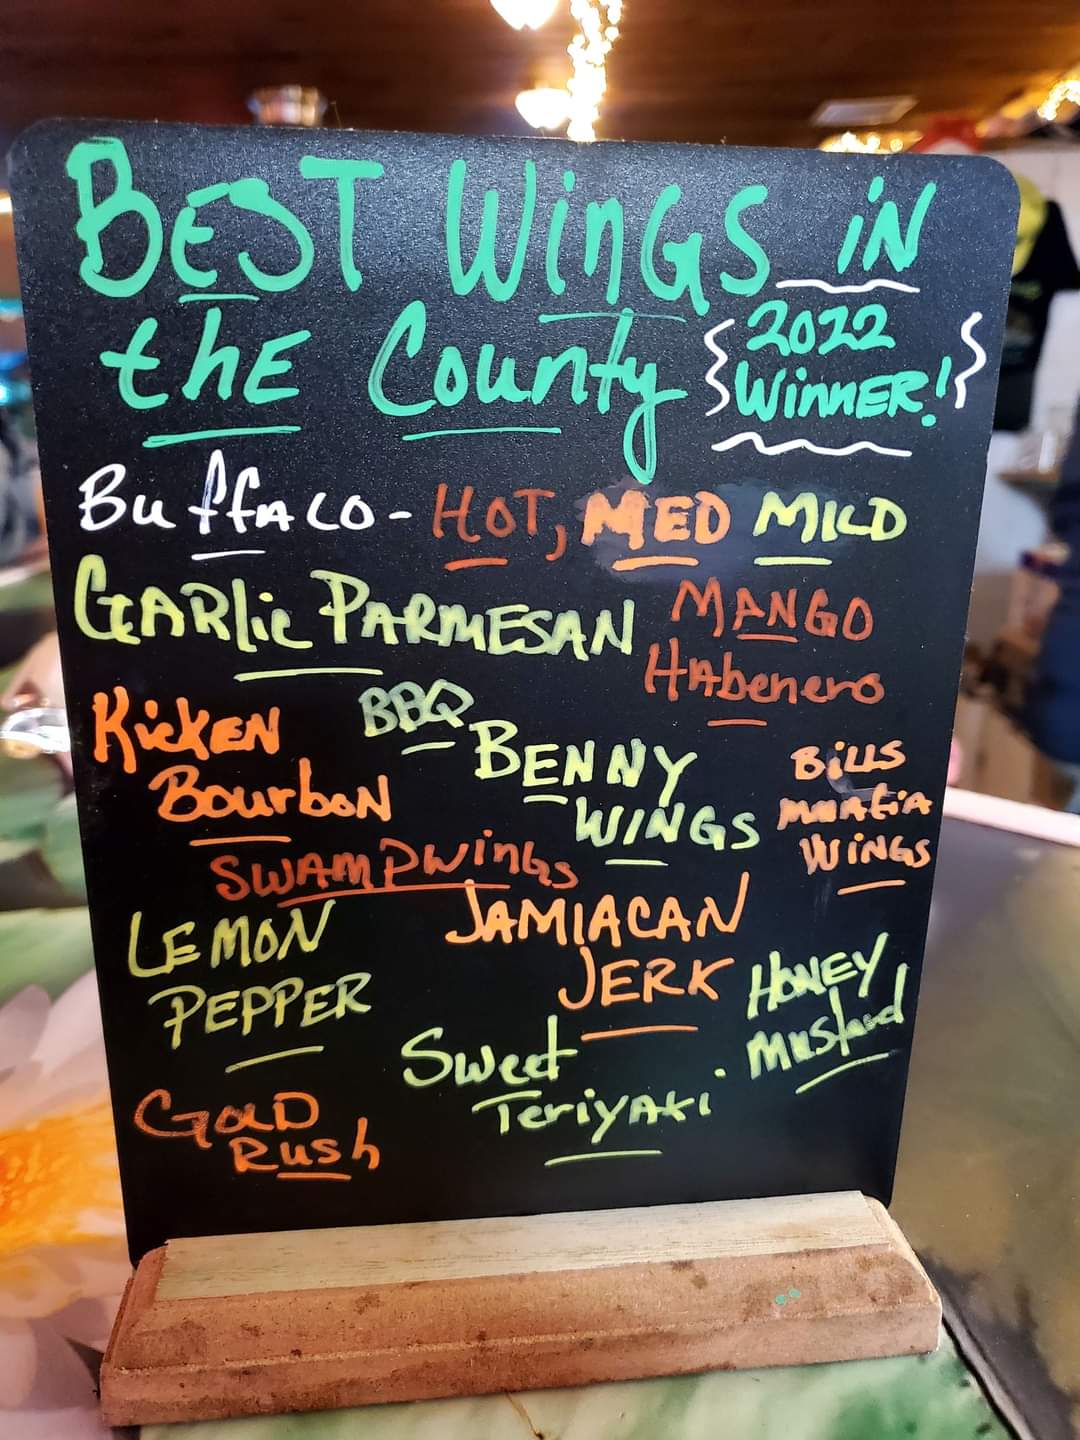 BEST WinGS iN
thE County
2022
WinnER!
BuffALO - HOT, MED MILD
GARlic PARMESAN
MANGO
HAbenero
KickEN
BourboN
BBQ
BENNY
WINGS
BiLLS
mmafia
WiNGS
SWAMPWinGs
LEMON
PEPPER
JAMIACAN
JERK
HONEY
Mustard
Sweet
Teriyaki
GOLD
Rush